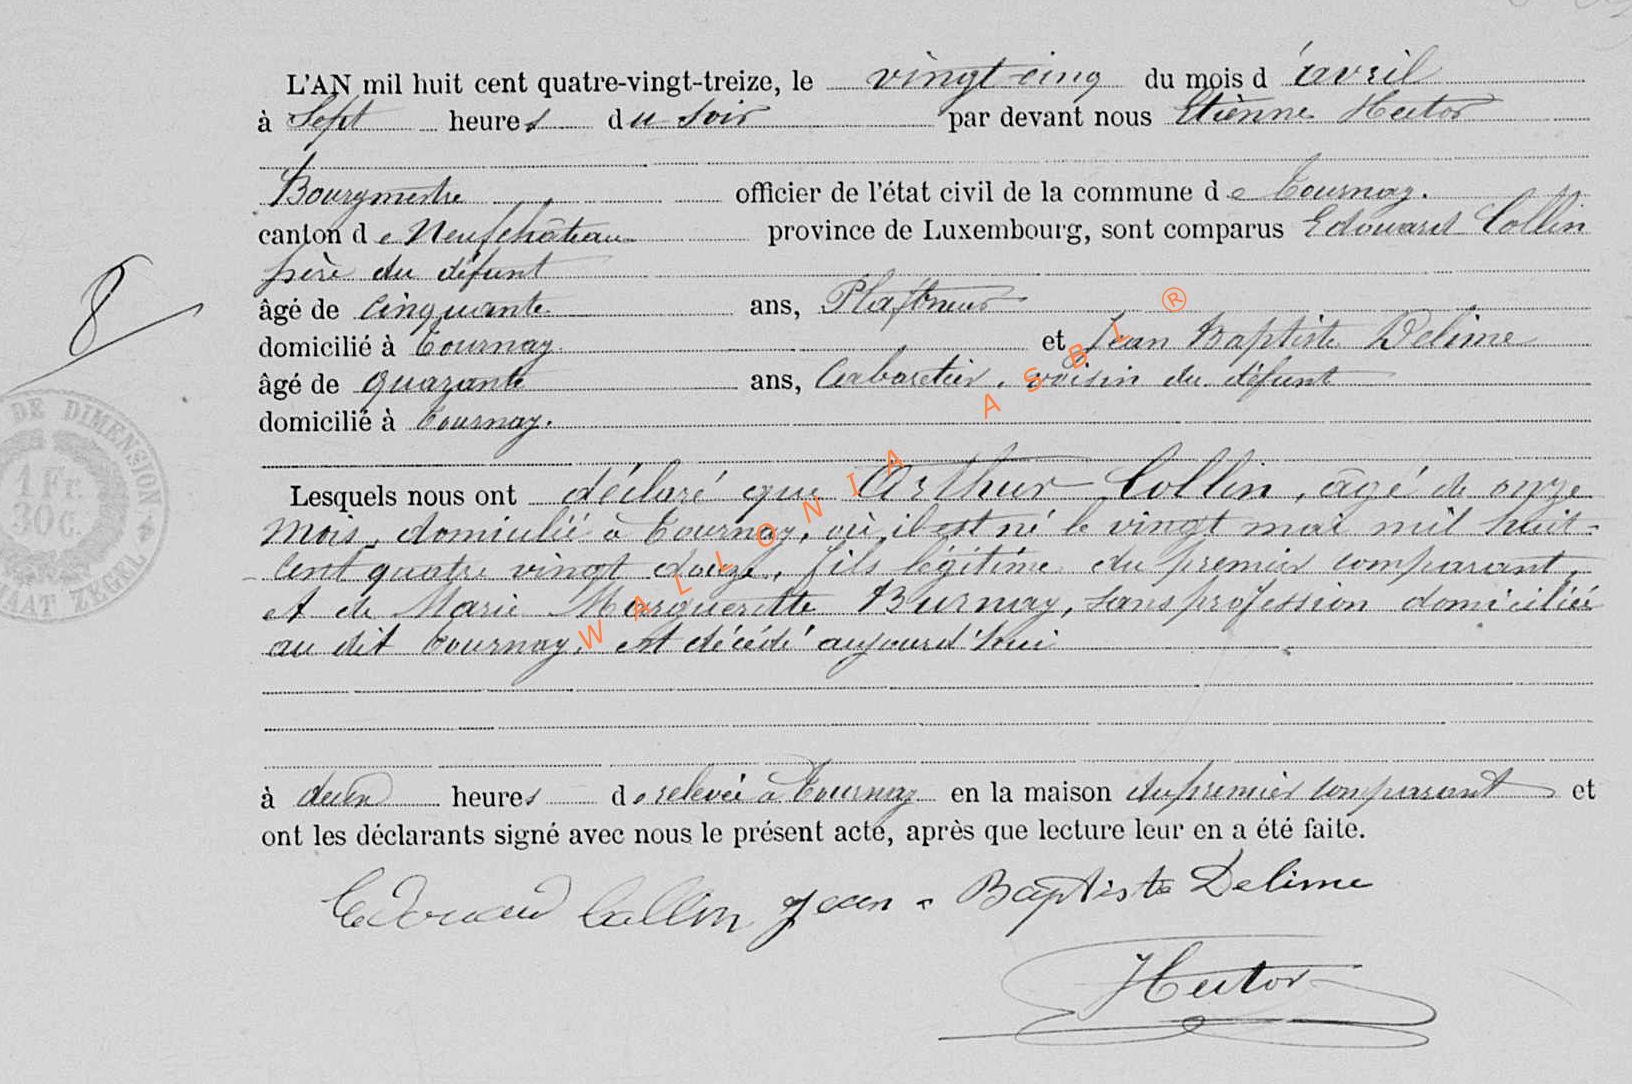 L'AN mil huit cent quatre-vingt-treize, le vingt cinq du mois d'avril
à Sept heures du soir par devant nous Etienne Hector
Bourgmestre officier de l'état civil de la commune de Tournay.
canton de Neufchâteau province de Luxembourg, sont comparus Edouard Collin
père du défunt
âgé de cinquante ans, Plafoneur
domicilié à Tournay et Jean Baptiste Delime
âgé de quarante ans, Cabaretier, voisin du défunt
domicilié à Tournay.
8
DE DIMENSION
1 Fr.
30 C.
ZEGEL
Lesquels nous ont déclaré que Arthur Collin, âgé de onze
mois, domicilié à Tournay, où il est né le vingt mai mil huit-
cent quatre vingt douze, fils légitime du premier comparant,
et de Marie Margueritte Burnay, sans profession domiciliée
au dit Tournay, est décédé aujourd'hui
à deux heures de relevée à Tournay en la maison du premier comparant et
ont les déclarants signé avec nous le présent acte, après que lecture leur en a été faite.
Edouard Collin Jean-Baptiste Delime
Hector
WALLONIA ASBL ®